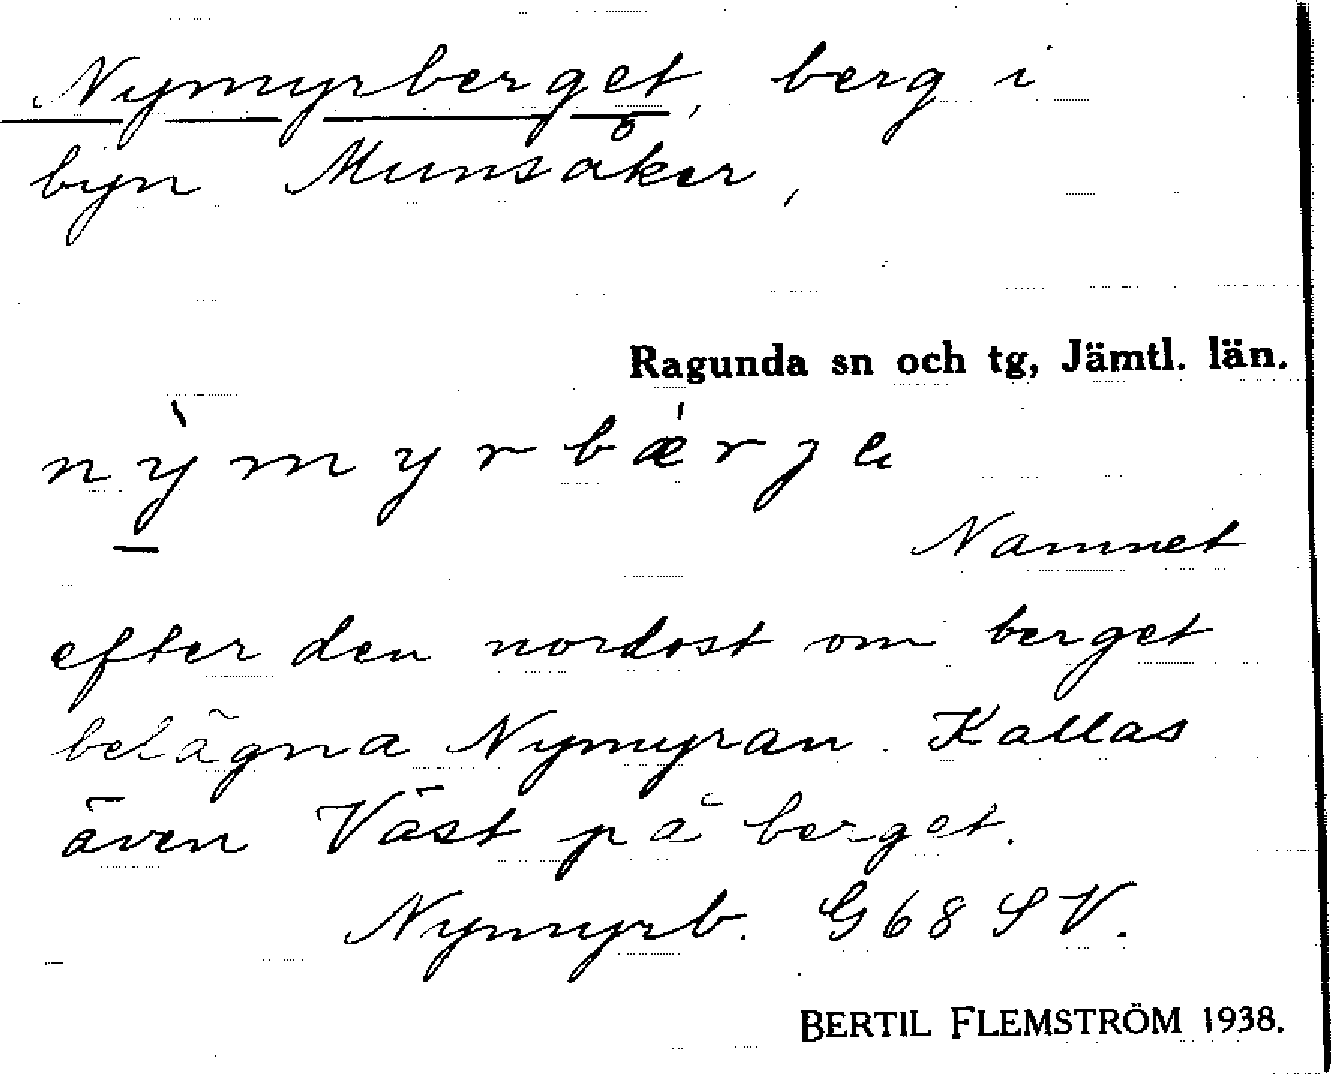 Nymyrberget, berg i
byn Munsåker,
Ragunda sn och tg, Jämtl. län.
nỳmyrbǽrje
Namnet
efter den nordost om berget
belägna Nymyran. Kallas
även Väst på berget.
Nymyrb. G68SV.
BERTIL FLEMSTRÖM 1938.